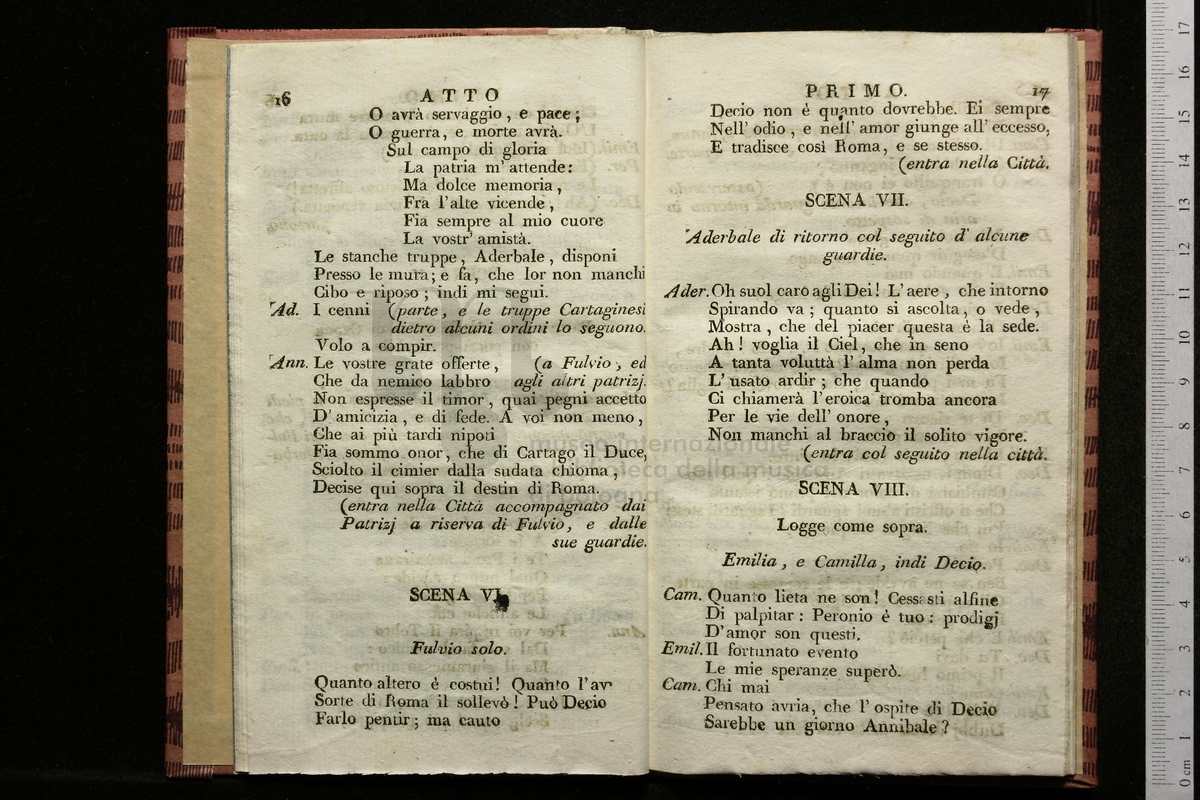 16 ATTO
O avrà servaggio, e pace;
O guerra, e morte avrà.
Sul campo di gloria
La patria m'attende:
Ma dolce memoria,
Fra l'alte vicende,
Fia sempre al mio cuore
La vostr' amistà.
Le stanche truppe, Aderbale, disponi
Presso le mura; e fa, che lor non manchi
Cibo e riposo; indi mi segui.
Ad. I cenni (parte, e le truppe Cartaginesi
dietro alcuni ordini lo seguono.
Volo a compir.
Ann. Le vostre grate offerte, (a Fulvio, ed
Che da nemico labbro agli altri patrizj.
Non espresse il timor, quai pegni accetto
D'amicizia, e di fede. A voi non meno,
Che ai più tardi nipoti
Fia sommo onor, che di Cartago il Duce,
Sciolto il cimier dalla sudata chioma,
Decise qui sopra il destin di Roma.
(entra nella Città accompagnato dai
Patrizj a riserva di Fulvio, e dalle
sue guardie.
SCENA VI.
Fulvio solo.
Quanto altero è costui! Quanto l'av
Sorte di Roma il sollevò! Può Decio
Farlo pentir; ma cauto
PRIMO. 17
Decio non è quanto dovrebbe. Ei sempre
Nell' odio, e nell' amor giunge all' eccesso,
E tradisce così Roma, e se stesso.
(entra nella Città.
SCENA VII.
Aderbale di ritorno col seguito d' alcune
guardie.
Ader. Oh suol caro agli Dei! L'aere, che intorno
Spirando va; quanto si ascolta, o vede,
Mostra, che del piacer questa è la sede.
Ah! voglia il Ciel, che in seno
A tanta voluttà l' alma non perda
L' usato ardir; che quando
Ci chiamerà l'eroica tromba ancora
Per le vie dell' onore,
Non manchi al braccio il solito vigore.
(entra col seguito nella città.
SCENA VIII.
Logge come sopra.
Emilia, e Camilla, indi Decio.
Cam. Quanto lieta ne son! Cessasti alfine
Di palpitar: Peronio è tuo: prodigj
D'amor son questi.
Emil. Il fortunato evento
Le mie speranze superò.
Cam. Chi mai
Pensato avria, che l' ospite di Decio
Sarebbe un giorno Annibale?
museo internazionale
biblioteca della musica
bologna
0 cm 1 2 3 4 5 6 7 8 9 10 11 12 13 14 15 16 17